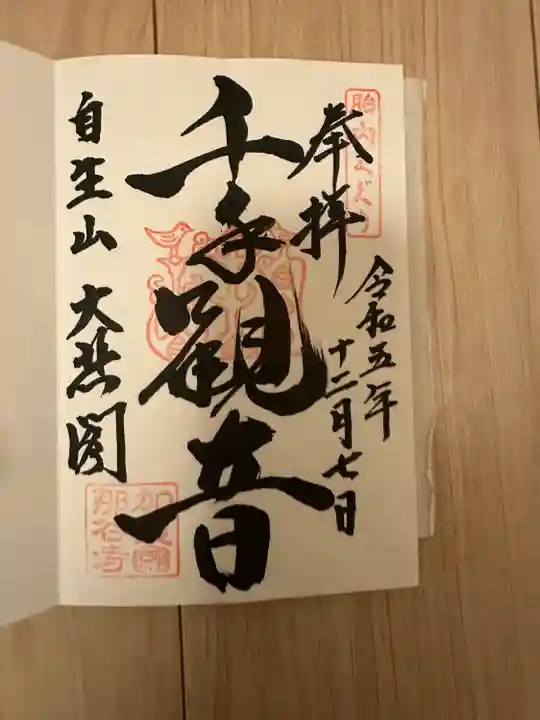 胎内くぐり
奉拝
令和五年
十二月七日
千手観音
自生山 大悲閣
那谷寺